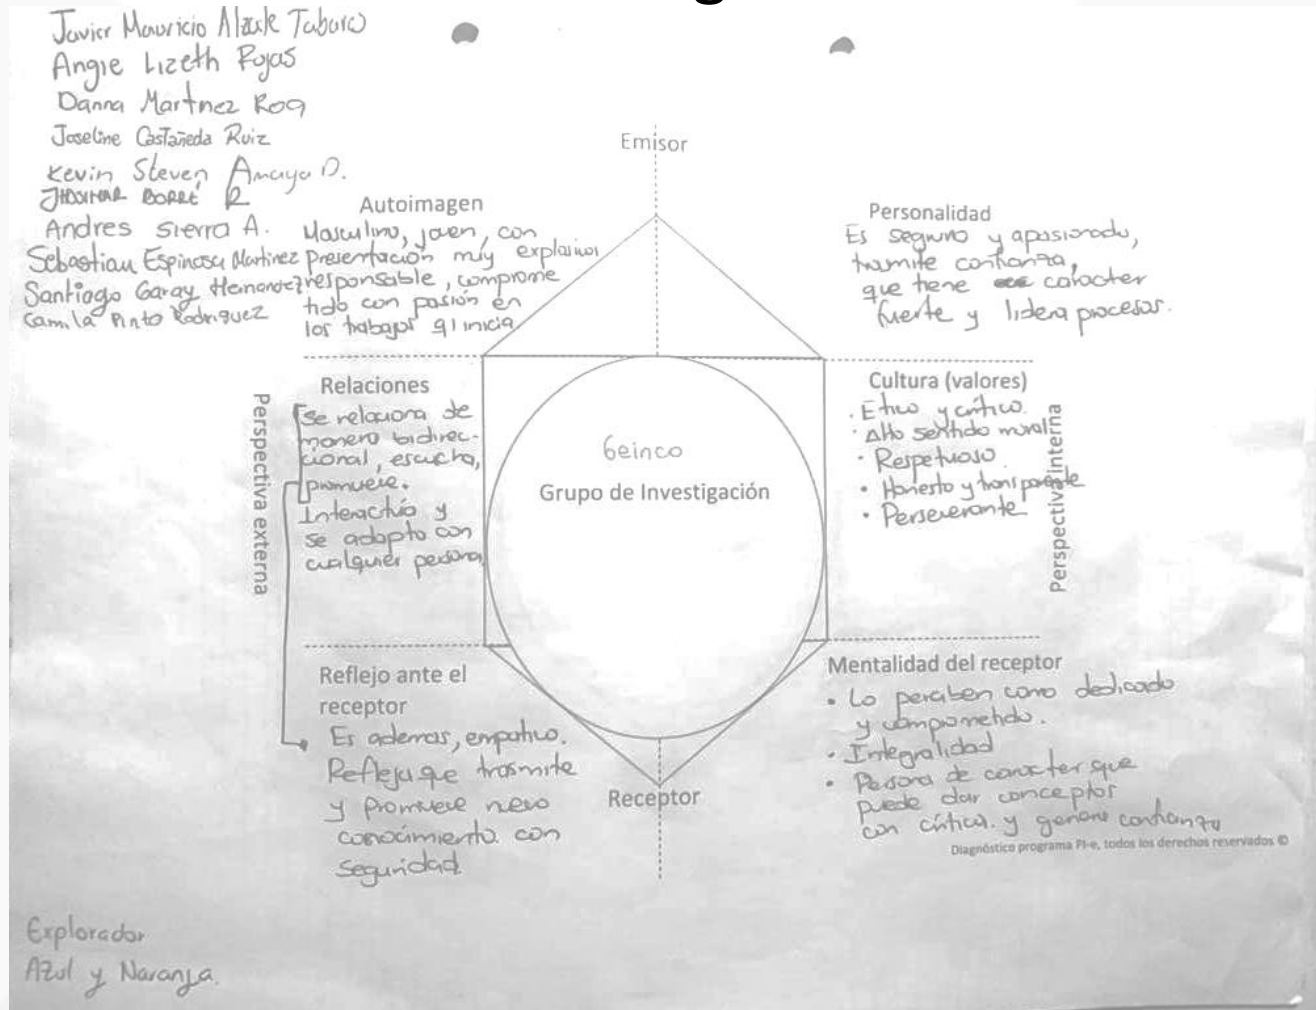 Javier Mauricio
Angie Lizeth Rojas
Danna Martnez Roa
Joseline Castañeda Ruiz
Kevin Steven Amaya D.
BORRÉ R
Andres Sierra A.
Sebastian Espinosa Martinez
Santiago Garay Hernandez
Camila Pinto Rodriguez
Emisor
Autoimagen
Masculino, joven, con
presentación muy
responsable, comprome
tido con pasión en
los trabajos q inicia
Personalidad
Es seguro y apasionado,
trasmite confianza,
que tiene caracter
fuerte y lidera procesos.
Perspectiva externa
Relaciones
Se relaciona de
manera bidirec-
cional, escucha,
promueve.
Interactivo y
se adapta con
cualquier persona
Geinco
Grupo de Investigación
Cultura (valores)
· Etico y crítico.
· Alto sentido moral
· Respetuoso
· Honesto y transparente
· Perseverante
Perspectiva interna
Reflejo ante el
receptor
Es ademas, empatico.
Refleja que trasmite
y promueve nevo
conocimiento. con
Seguridad
Receptor
Mentalidad del receptor
· Lo perciben como dedicado
y comprometido.
· Integralidad
· Persona de caracter que
puede dar conceptos
con critica. y genera confianza
Diagnóstico programa PI-e, todos los derechos reservados ©
Explorador
Azul y Naranja.